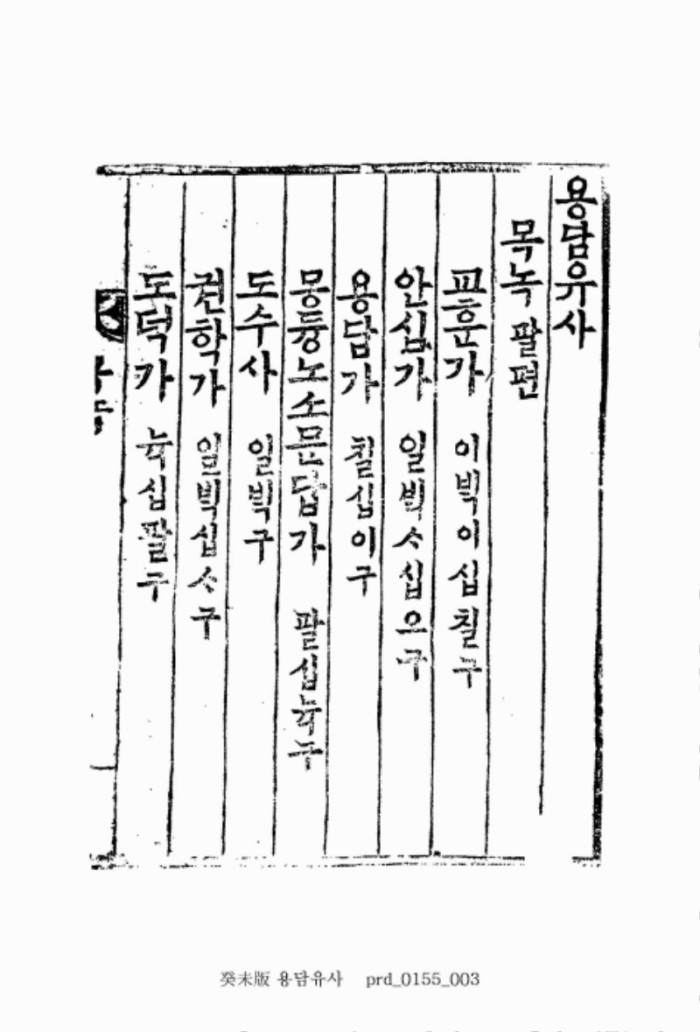 용담유사
목녹 팔편
교훈가 이빅이십칠구
안심가 일빅ᄉ십으구
용담가 칠십이구
몽듕노소문답가 팔십뉵구
도수사 일빅구
권학가 일빅십ᄉ구
도덕가 뉵십팔구
癸未版 용담유사 prd_0155_003